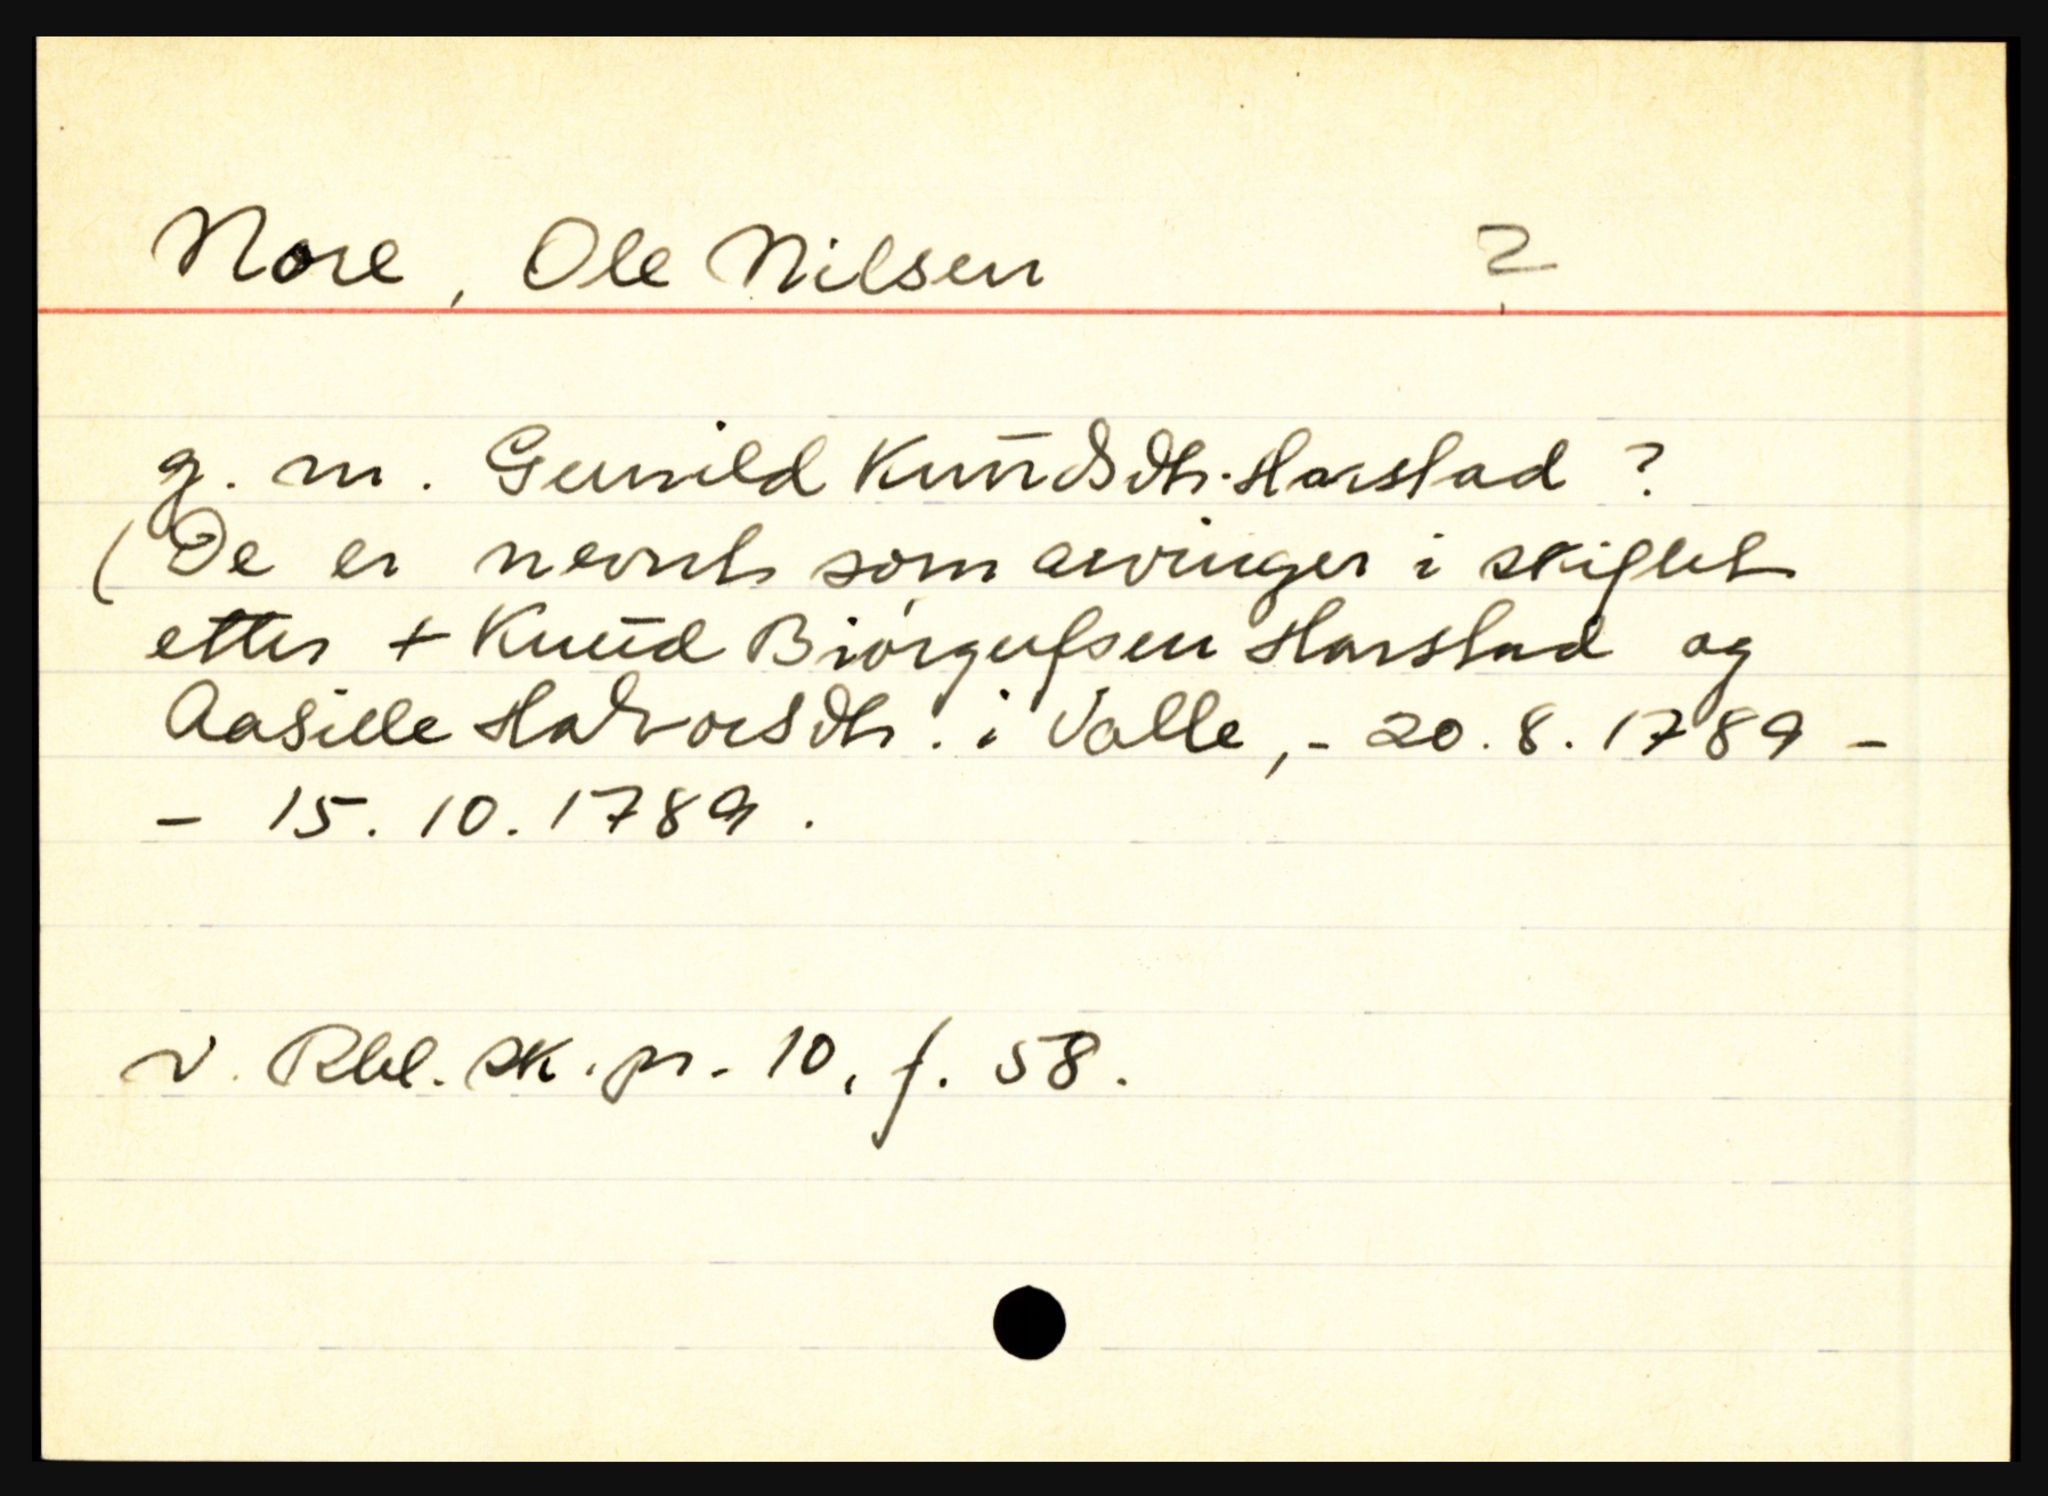 Nore, Ole Nilsen ?
g. m. Gunild Knudsdtr. Harstad ?
(De er nevnt som arvinger i skiftet
etter + Knud Biørgufsen Harstad og
Aasille Halvorsdtr. i Valle, - 20.8.1789 -
- 15.10.1789.
v. Rbl. sk. pr. 10, f. 58.